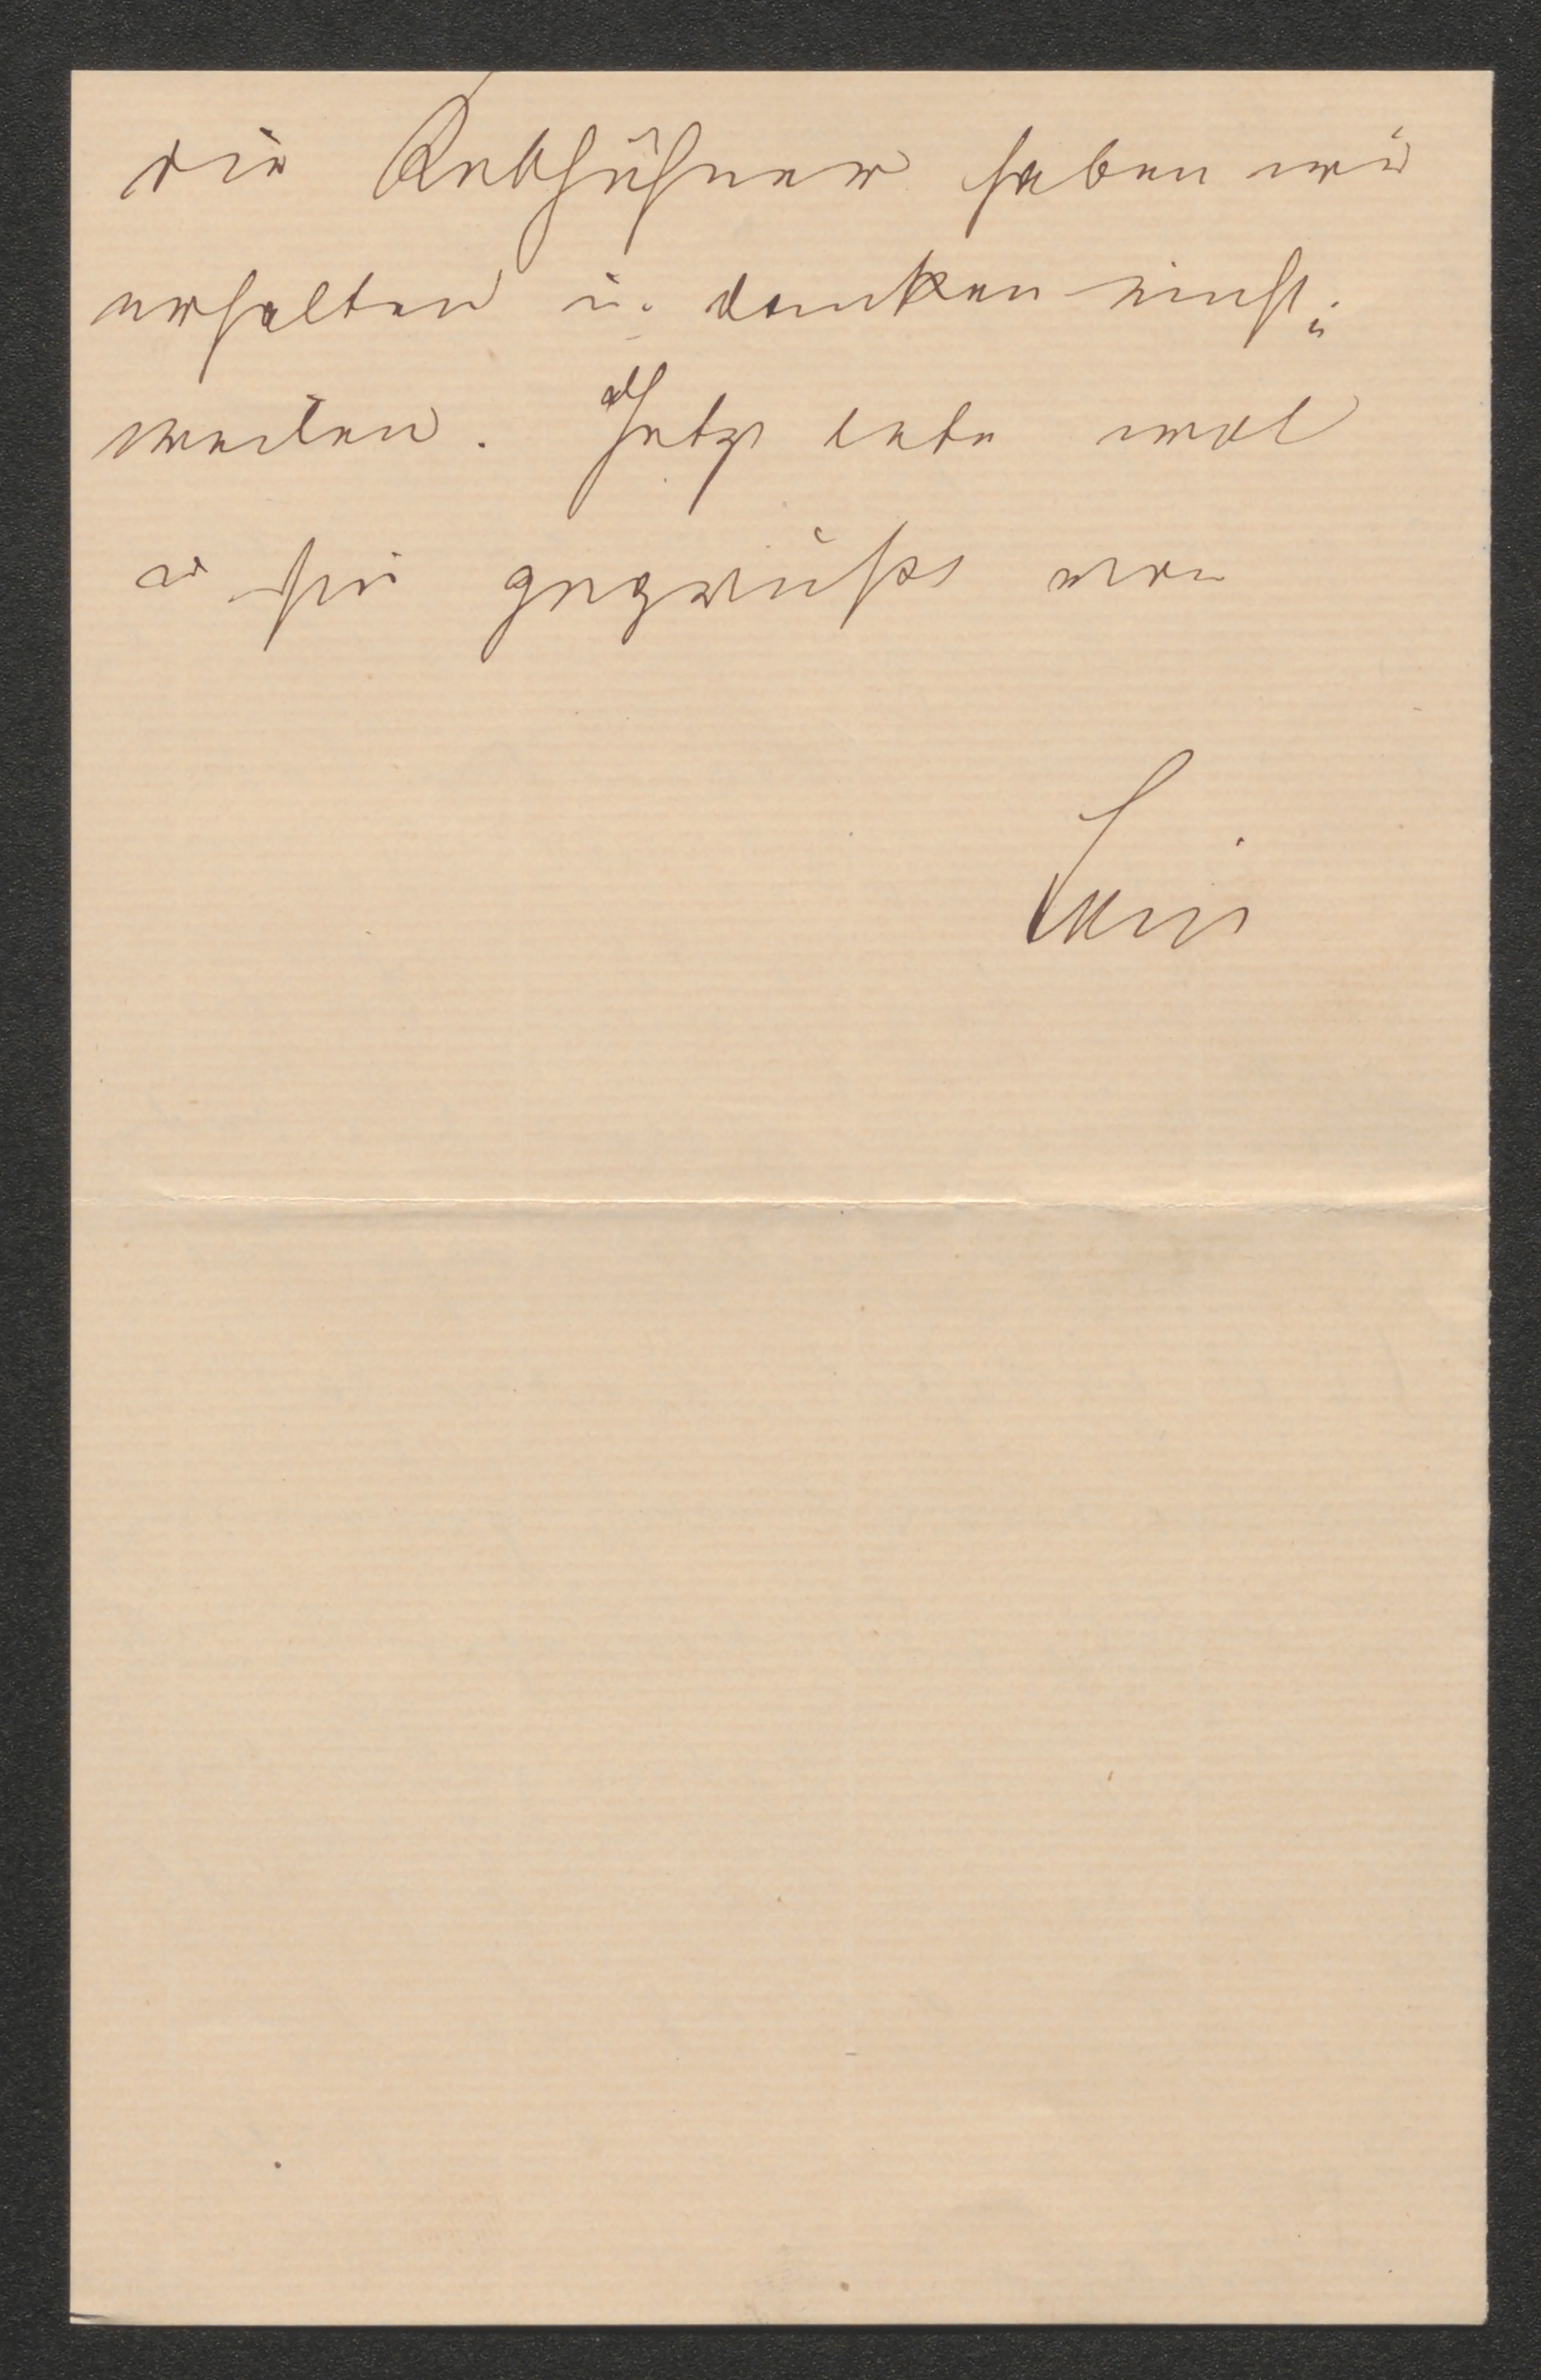 die Rebhühner haben wir
erhalten u. danken einst-
weilen. Jetzt lebe wol
u sei gegrüßt von